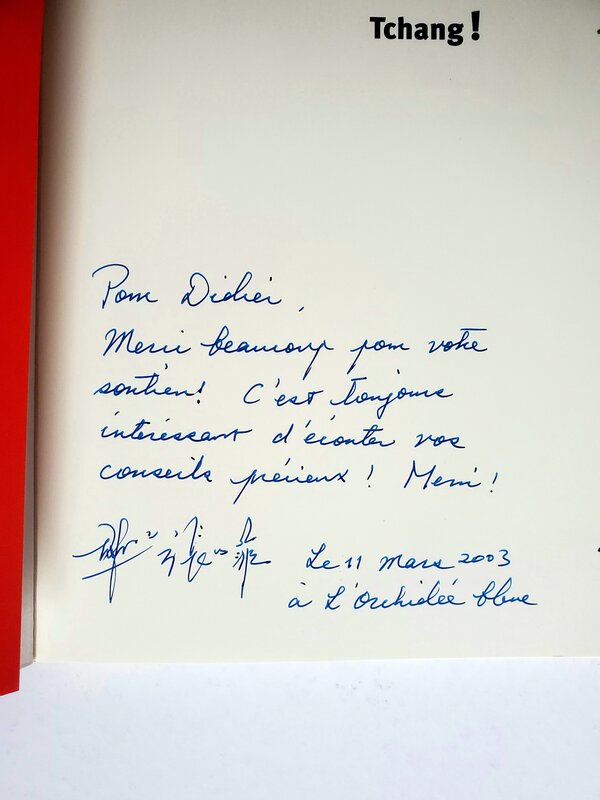 Tchang !
Pour Didier,
Merci beaucoup pour votre
soutien! C'est toujours
intéressant d'écouter vos
conseils précieux ! Merci !
Le 11 mars 2003
à L'Orchidée bleue